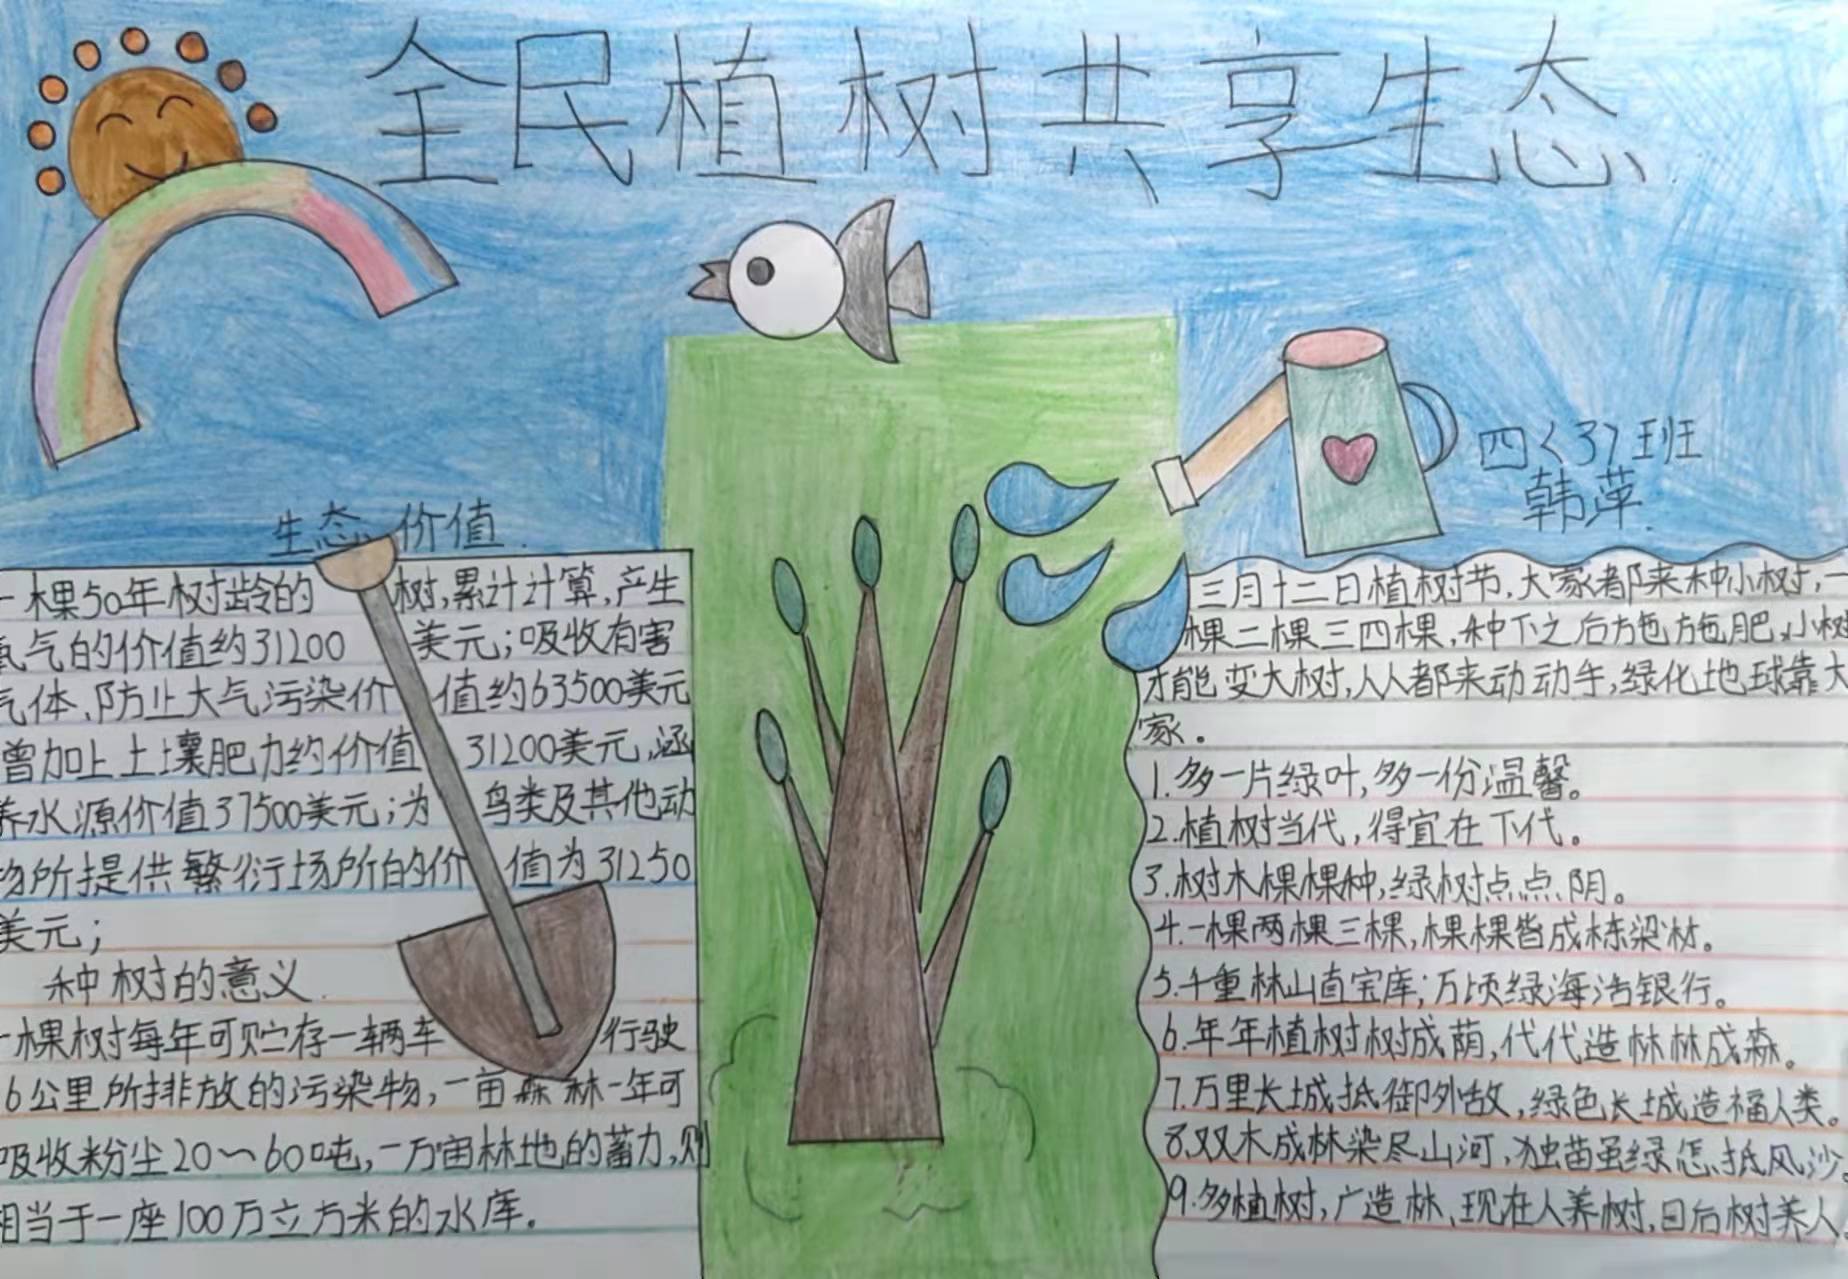 全民植树共享生态
四<3>班
韩萍
生态价值
一棵50年树龄的树,累计计算,产生
氧气的价值约31200美元;吸收有害
气体、防止大气污染价值约63500美元
曾加上土壤肥力约价值31200美元,涵
养水源价值37500美元;为鸟类及其他动
物所提供繁衍场所的价值为31250
美元;
种树的意义
一棵树每年可贮存一辆车行驶
16公里所排放的污染物,一亩森林一年可
吸收粉尘20~60吨,一万亩林地的蓄力,则
相当于一座100万立方米的水库。
三月十二日植树节,大家都来种小树,一
棵二棵三四棵,种下之后施施肥,小树
才能变大树,人人都来动动手,绿化地球靠大
家。
1.多一片绿叶,多一份温馨。
2.植树当代,得宜在下代。
3.树木棵棵种,绿树点点阴。
4.一棵两棵三棵,棵棵皆成栋梁材。
5.千重林山直宝库;万顷绿海活银行。
6.年年植树树成荫,代代造林林成森。
7.万里长城抵御外敌,绿色长城造福人类。
8.双木成林染尽山河,独苗虽绿怎抵风沙。
9.多植树,广造林、现在人养树,日后树养人。